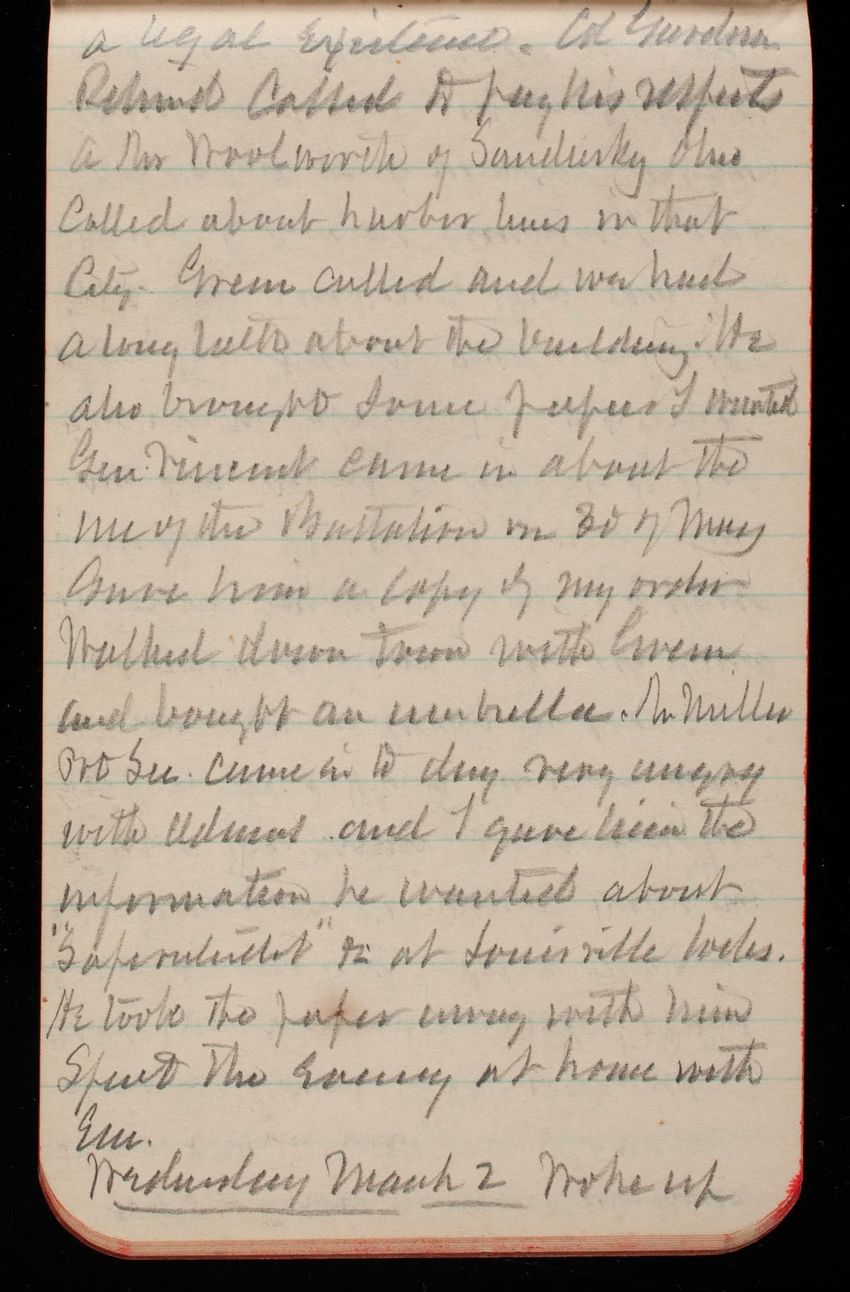 a legal Existence. Col Gardner
Retired Called to pay his respects
A Mr Woolworth of Sandusky Ohio
Called about harbor lines in that
City. Green called and we had
a long talk about the building. He
also brought some papers I wanted
Gen. Vincent came in about the
use of the Battalion on 3d of May
Gave him a copy of my order
Walked down Town with Green
and bought an umbrella. Mr Miller
Sec. came in to day very angry
with Adams and I gave him the
information he wanted about
&c at Louisville locks.
He took the paper away with him
Spent the Evening at home with
Em.
Wednesday March 2 Woke up